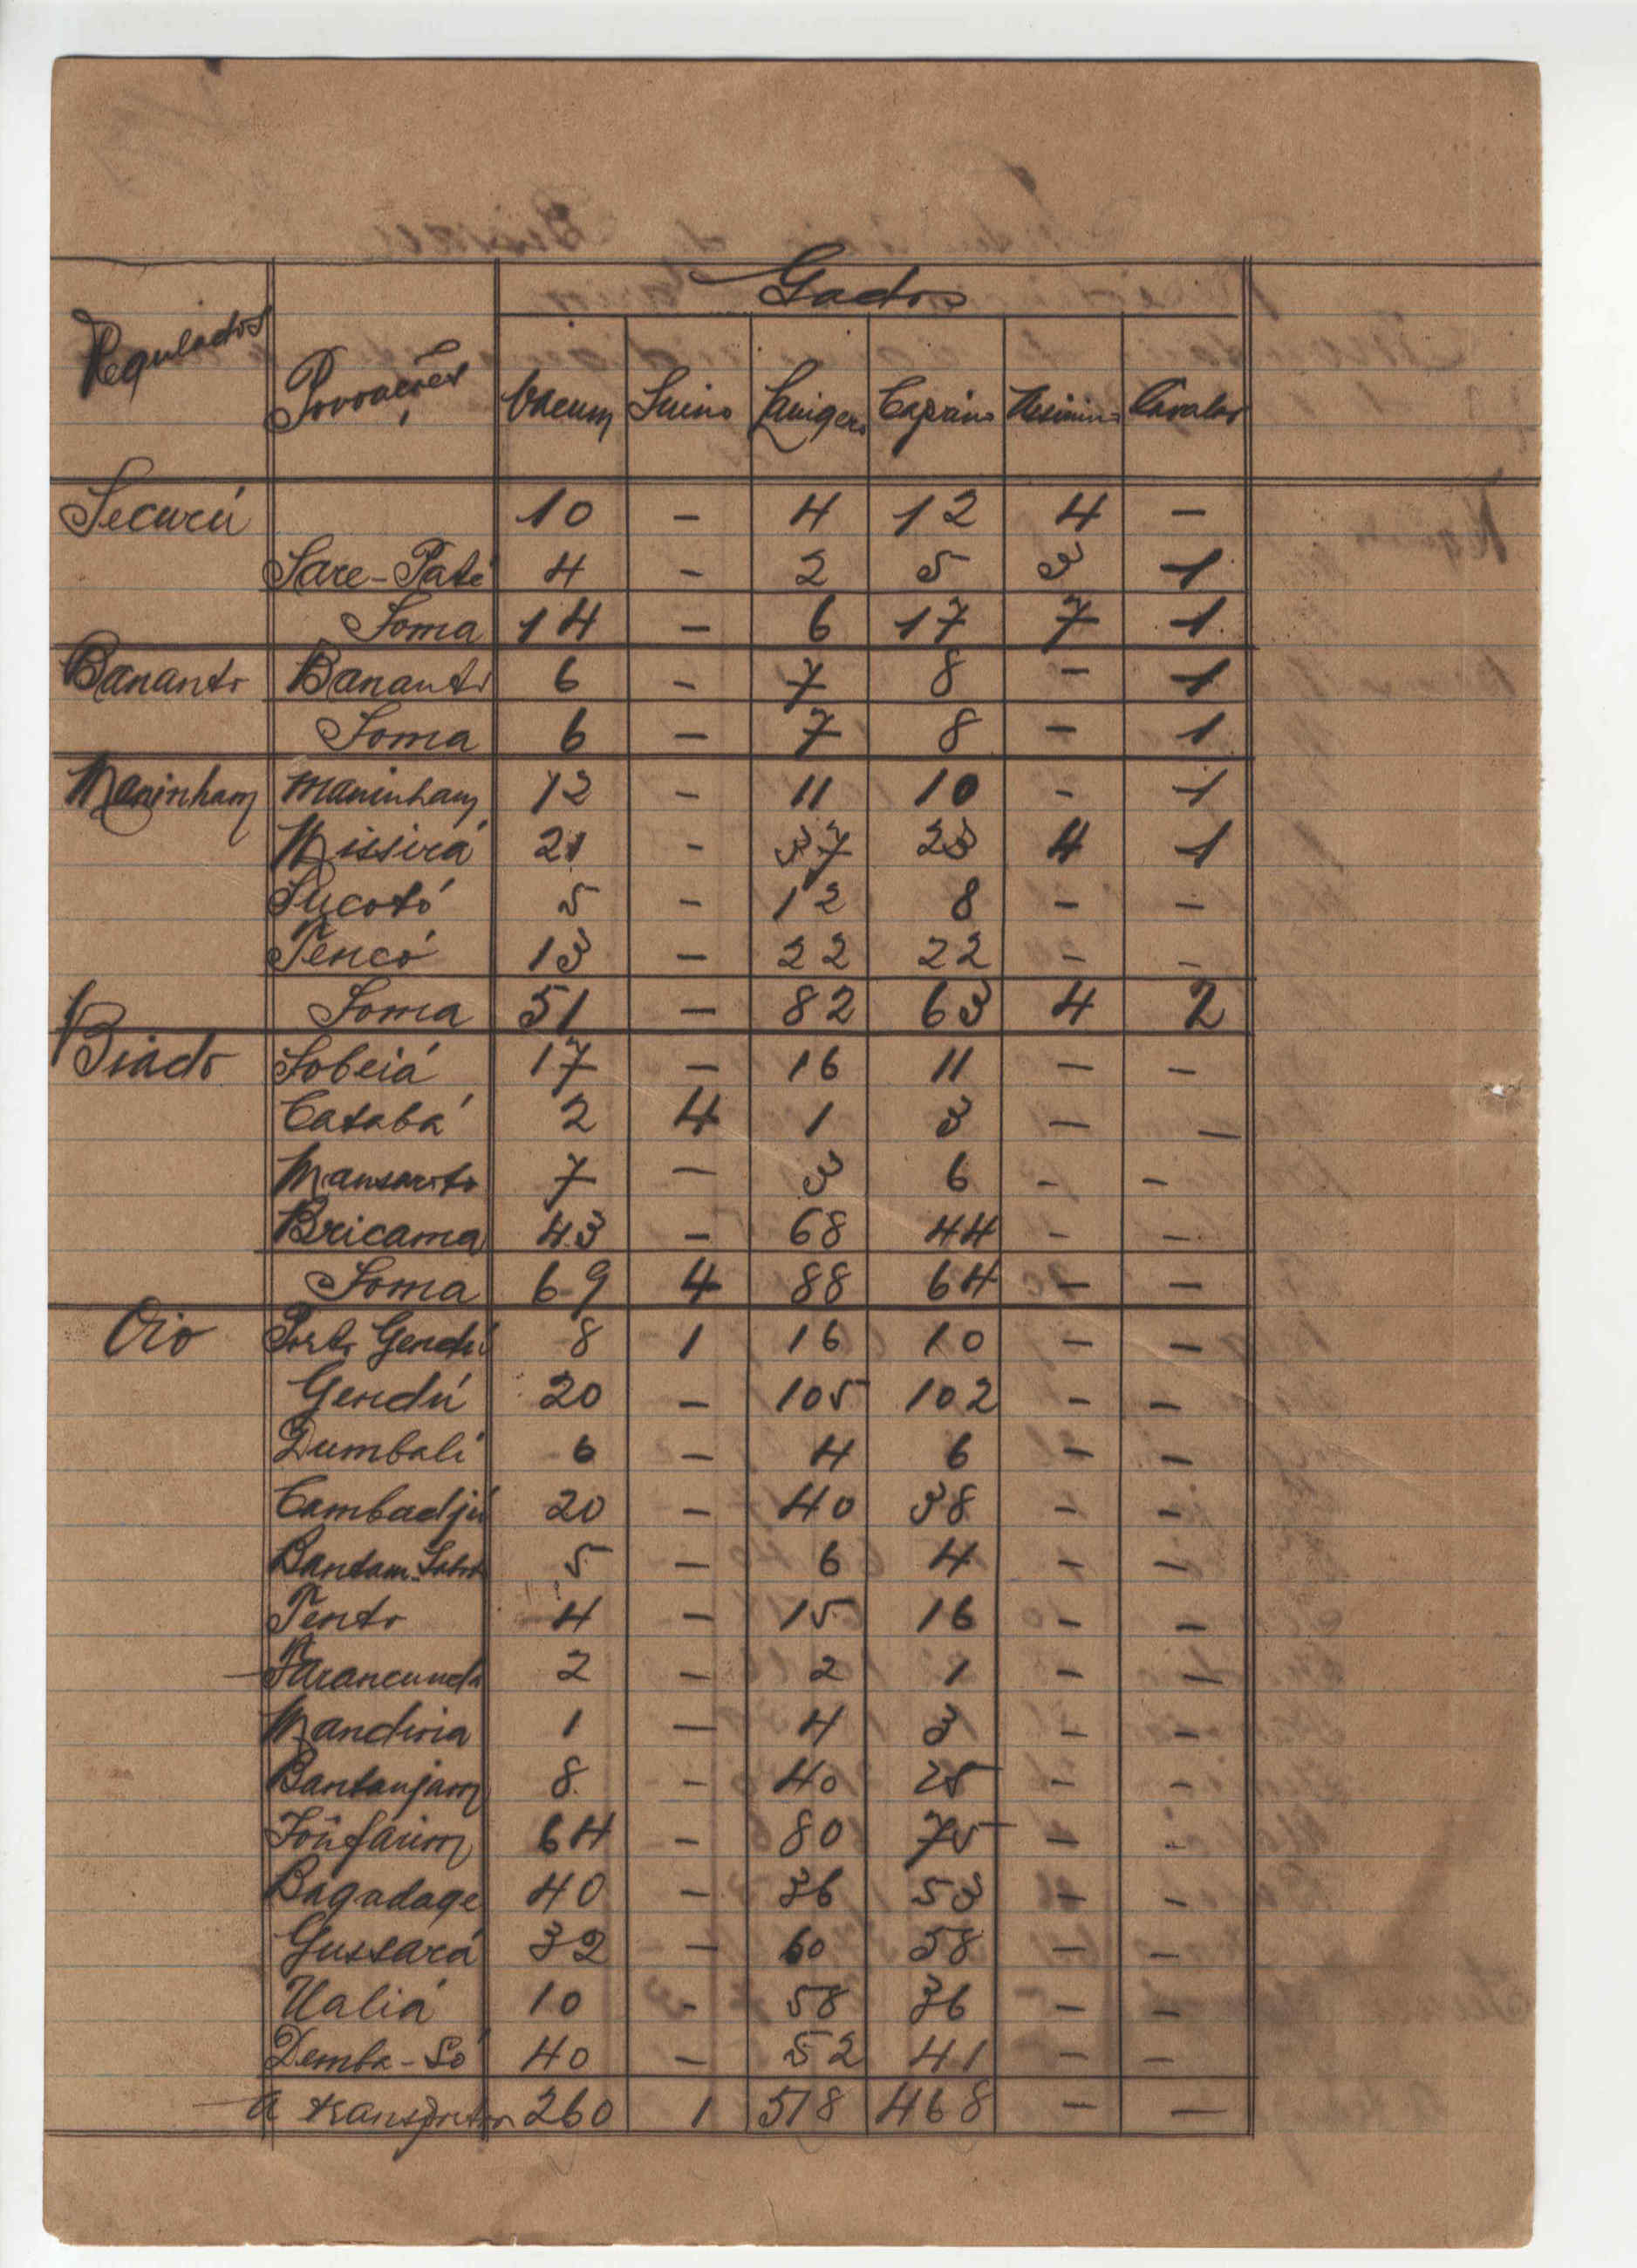 Gados
Regulados Povoações Vacum Suino Lanigero Caprino Asinino Cavalar
Securú 10 - 4 12 4 -
Sare-Paté 4 - 2 5 3 1
Soma 14 - 6 17 7 1
Bananto Bananto 6 - 7 8 - 1
Soma 6 - 7 8 - 1
Maninham Maninham 12 - 11 10 - 1
Missirá 21 - 37 23 4 1
Sucotó 5 - 12 8 - -
Tencó 13 - 22 22 - -
Soma 51 - 82 63 4 2
Biado Sobeiá 17 - 16 11 - -
Catabá 2 4 1 3 - -
Mansoroto 7 - 3 6 - -
Bricama 43 - 68 44 - -
Soma 69 4 88 64 - -
Oio Porto Gendú 8 1 16 10 - -
Gendú 20 - 105 102 - -
Dumbali 6 - 4 6 - -
Cambadjú 20 - 40 38 - -
Bantam 5 - 6 4 - -
Tento 4 - 15 16 - -
Farancunda 2 - 2 1 - -
Mandina 1 - 4 3 - -
Bantanjam 8 - 40 25 - -
Fonfarim 64 - 80 75 - -
Bagadage 40 - 36 53 - -
Gussará 32 - 60 58 - -
Ualiá 10 - 58 36 - -
Demba-Só 40 - 52 41 - -
A transportar 260 1 518 468 - -